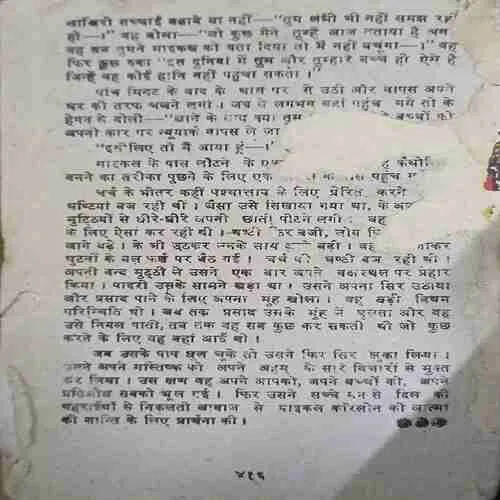 आखिरी सच्चाई बताये या नहीं—"तुम अभी भी नहीं समझ रही
हो—।" वह बोला—"जो कुछ मैंने तुम्हें आज बताया है अगर
वह सब तुमने माइकल को बता दिया तो मैं नहीं बचूंगा—।" वह
फिर कुछ रुका "इस दुनिया में तुम और तुम्हारे बच्चे ही ऐसे हैं
जिन्हें वह कोई हानि नहीं पहुंचा सकता।"
पांच मिनट के बाद के घास पर से उठी और वापस अपने
घर की तरफ चलने लगी। जब वे लगभग वहां पहुंच गये तो के
हेगन से बोली—"खाने के बाद क्या तुम बच्चों को
अपनी कार पर न्यूयार्क वापस ले जा
"इसीलिए तो मैं आया हूं—।"
माइकल के पास लौटने के एक वह कैथोलिक
बनने का तरीका पूछने के लिए एक के पास पहुंच
चर्च के भीतर कहीं पश्चाताप के लिए प्रेरित करने
घण्टियां बज रही थीं। जैसा उसे सिखाया गया था, के अपनी
मुट्ठियों से धीरे-धीरे अपनी छाती पीटने लगी। वह
के लिए ऐसा कर रही थी। घण्टी फिर बजी, लोग
आगे बढ़े। के भी उठकर उनके साथ आगे बढ़ी। वह जाकर
घुटनों के बल फर्श पर बैठ गई। चर्च की घण्टी बज रही थी।
अपनी बन्द मुट्ठी से उसने एक बार अपने वक्षस्थल पर प्रहार
किया। पादरी उसके सामने खड़ा था। उसने अपना सिर उठाया
और प्रसाद पाने के लिए अपना मुंह खोला। यह बड़ी विषम
परिस्थिति थी। जब तक प्रसाद उसके मुंह में घुलता और वह
उसे निगल पाती, तब तक वह सब कुछ कर सकती थी जो कुछ
करने के लिए वह यहां आई थी।
जब उसके पाप धुल चुके तो उसने फिर सिर झुका लिया।
उसने अपने मस्तिष्क को अपने अहम् के सारे विचारों से मुक्त
कर लिया। उस क्षण वह अपने आपको, अपने बच्चों को, अपने
प्रतिशोध सबको भूल गई। फिर उसने सच्चे मन से दिल की
गहराईयों से निकलती आवाज से माइकल कोरलोन की आत्मा
की शान्ति के लिए प्रार्थना की।
४१६